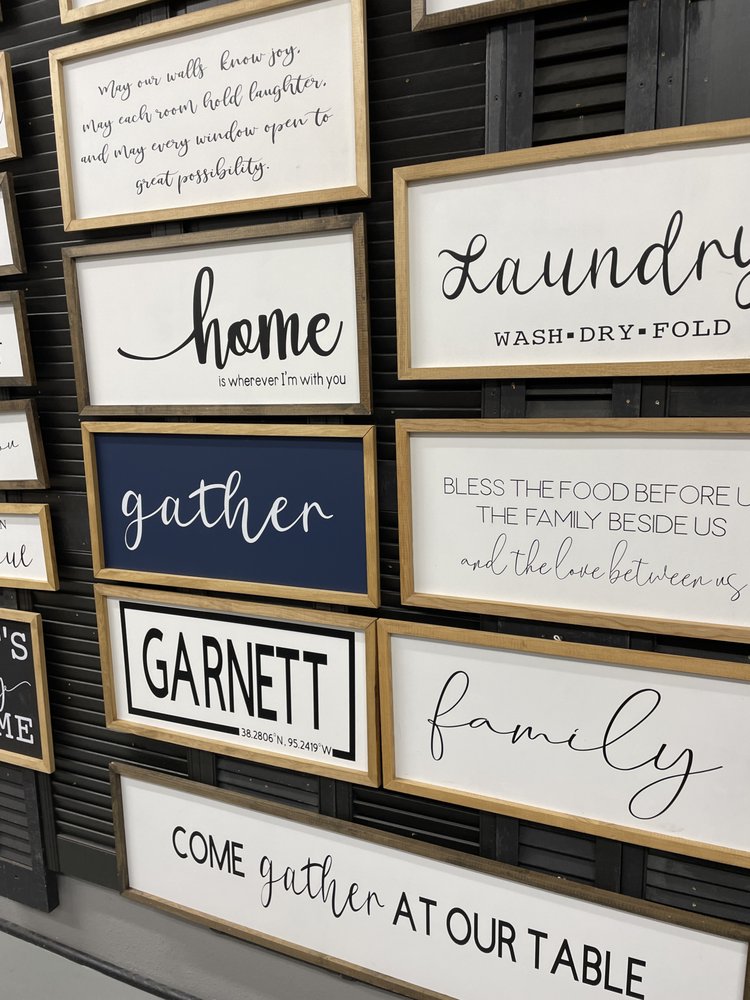 may our walls know joy,
may each room hold laughter,
and may every window open to
great possibility.
home
is wherever I'm with you
gather
GARNETT
38.2806°N, 95.2419°W
Laundry
WASH▪DRY▪FOLD
BLESS THE FOOD BEFORE U
THE FAMILY BESIDE US
and the love between us
family
COME gather AT OUR TABLE
ME